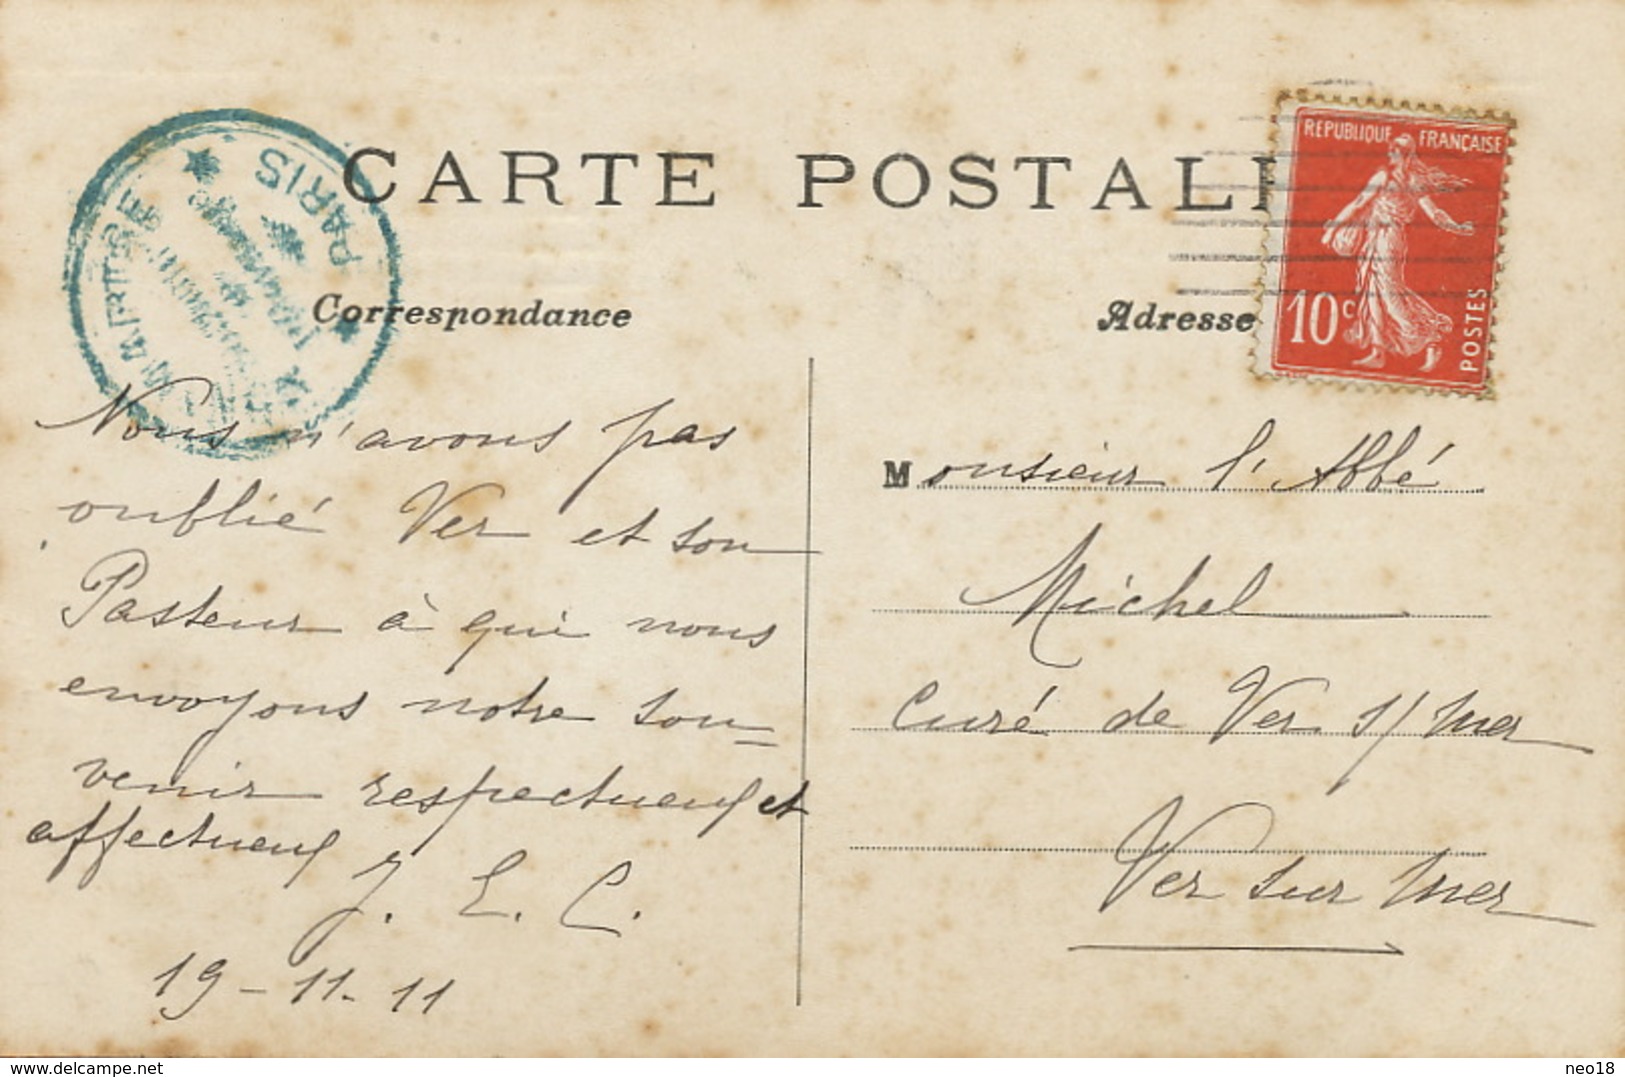 CARTE POSTALE
RÉPUBLIQUE FRANÇAISE
10c
POSTES
PARIS
Correspondance
Adresse
Nous n'avons pas
oublié Ver et son
Pasteur à qui nous
envoyons notre sou=
venir respectueux et
affectueux J. E. C.
19-11-11
Monsieur l'Abbé
Michel
Curé de Ver s/mer
Ver sur mer
delcampe.net
neo18